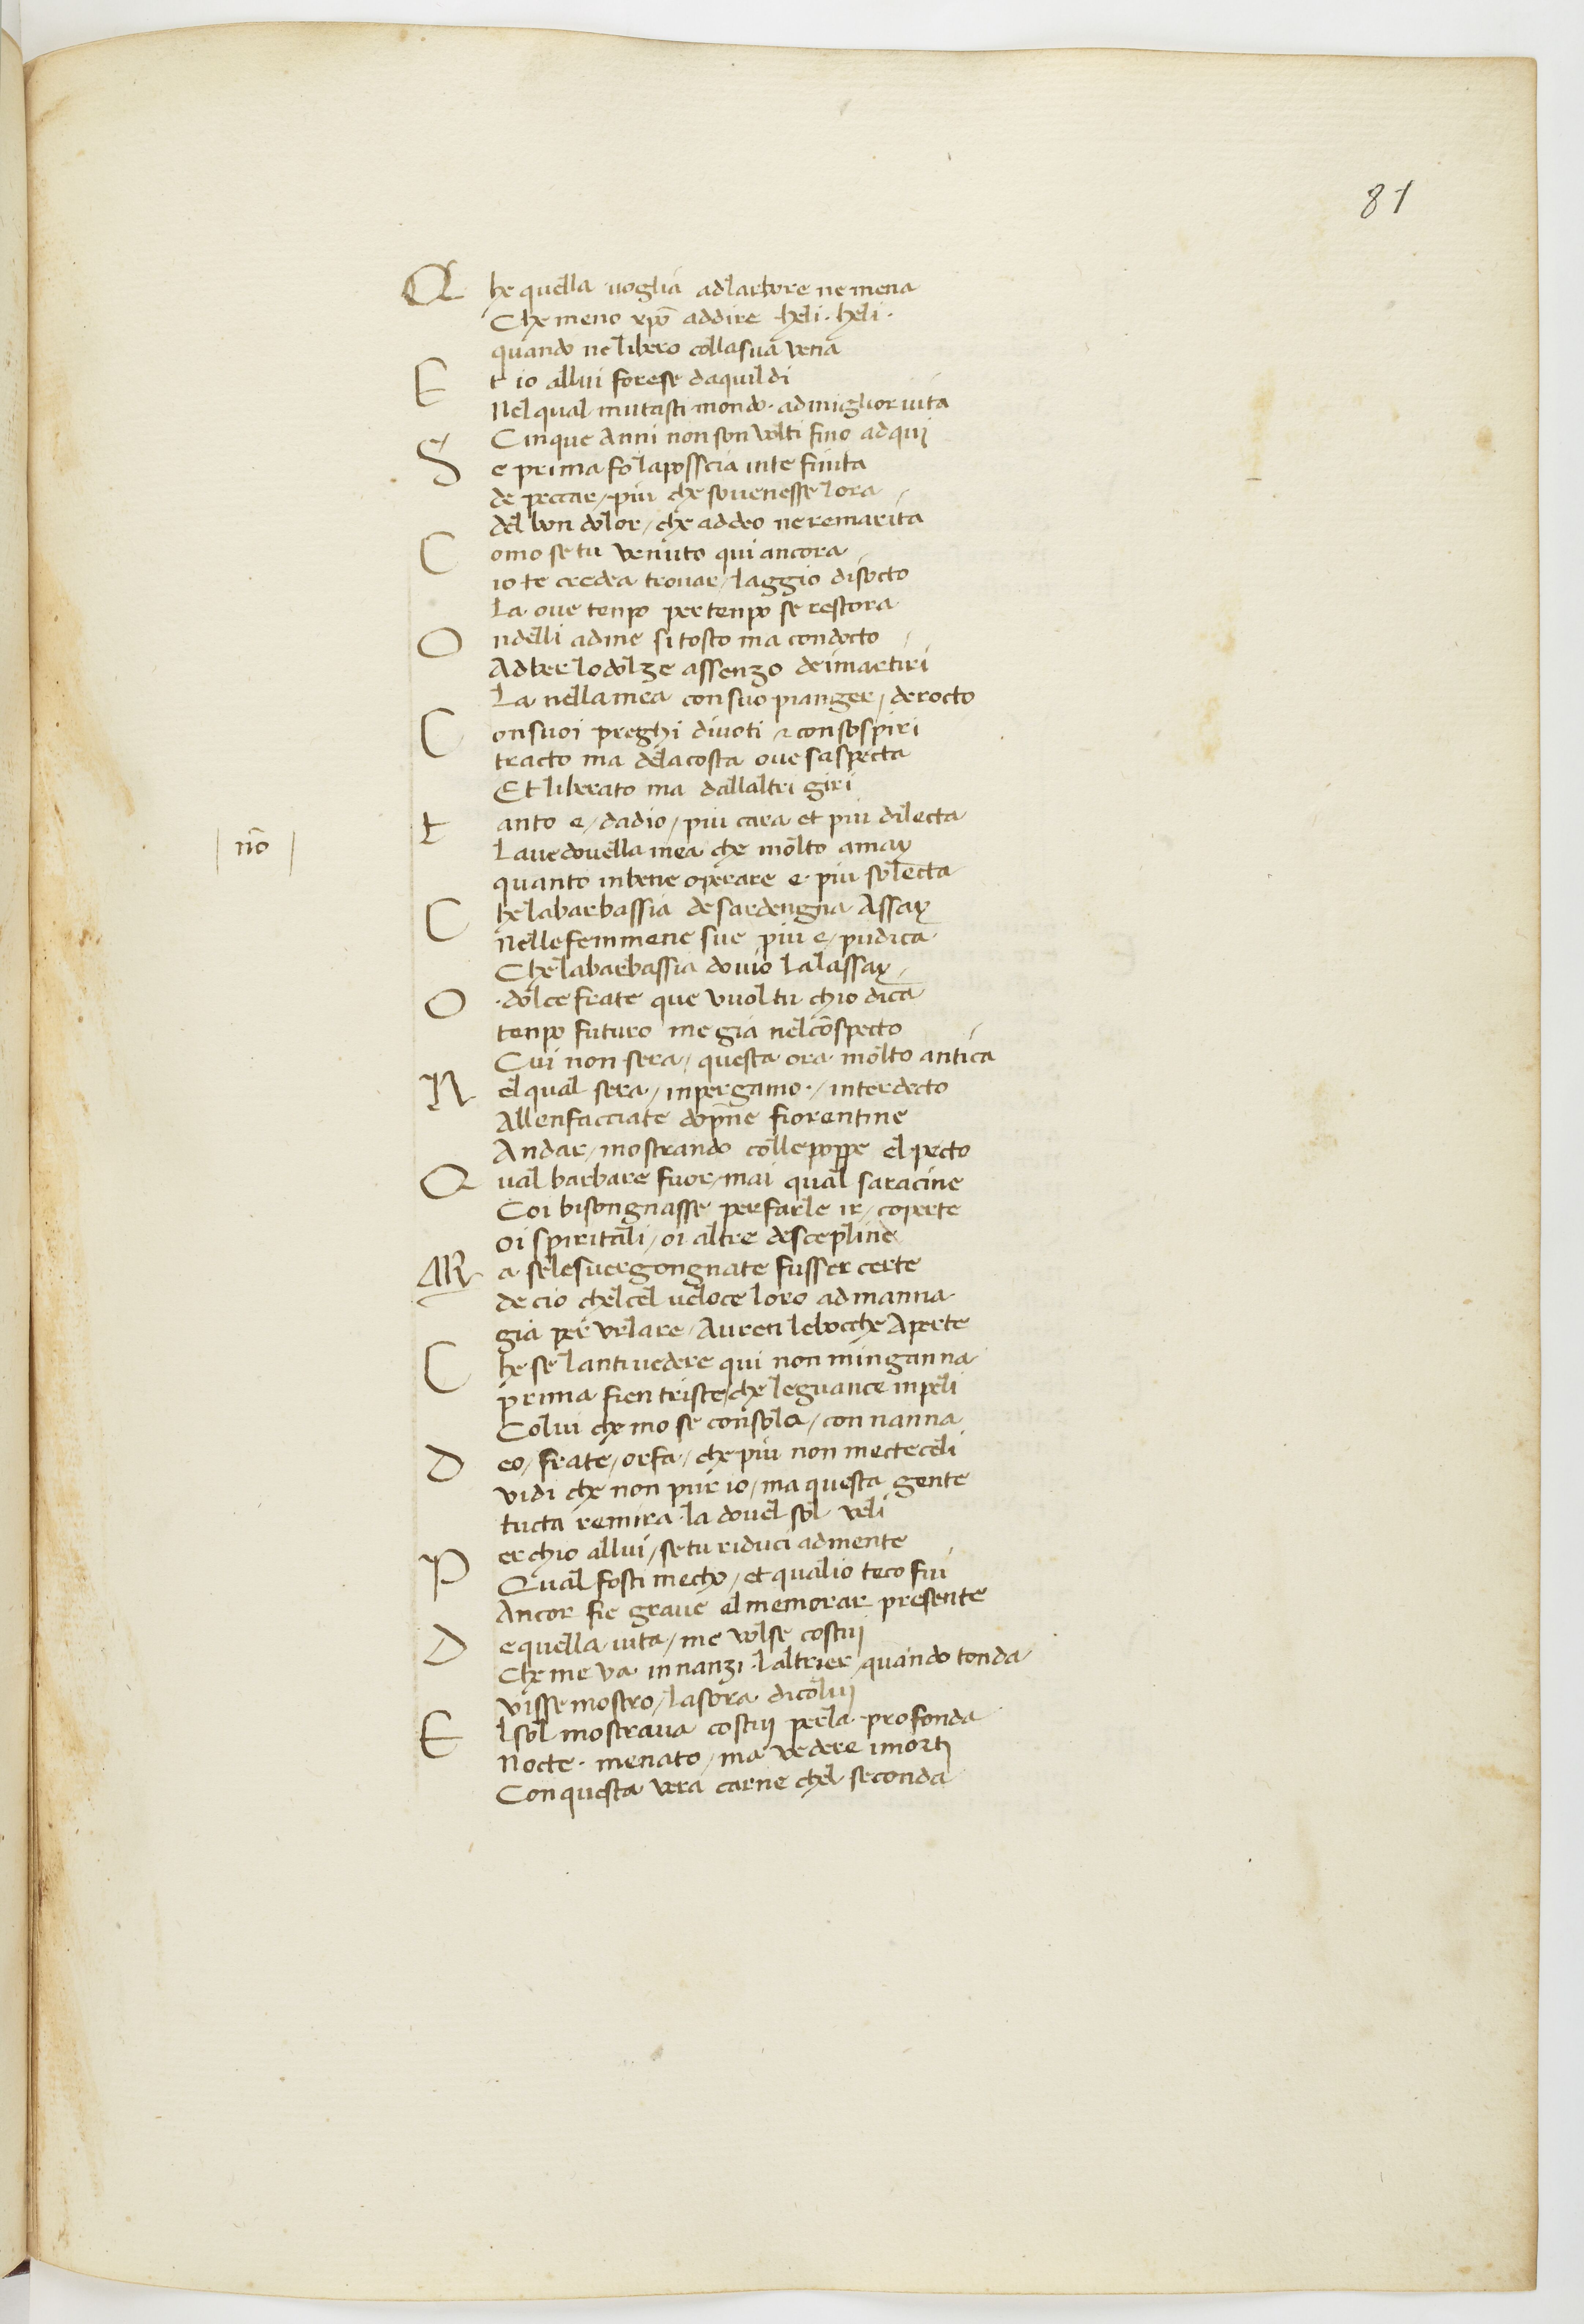 81
Q he quella uoglia adlarbore ne mena
Che meno xpō addire heli · heli ·
quando ne libero collasua vena
E t io allui forese daquildi
Nel qual mutasti mondo · admiglior uita
Cinque Anni non son volti fino adquj
S e prima fo laposscia inte finita
de peccar / piu che souenesse lora
del bon dolor / che addeo neremarita
C omo se tu venuto qui ancora
io te credea trouar / laggio disocto
La oue tenpo per tenpo se restora
O ndelli adme si tosto ma condocto
Adber lo dolze assenzo deimartiri
La nella mea con suo pianger / derocto
C on suoi preghi diuoti ⁊ con sospiri
tracto ma dela costa oue saspecta
Et liberato ma dallaltri giri
t anto e / dadio / piu cara et piu dilecta
nō
La uedouella mea che molto amay
quanto inbene operare e · piu solecta
C he labarbassia de sardengna Assay
Nelle femmene sue piu e / pudica
Che labarbassia douio lalassay
O · dolce frate que vuol tu chio dica
tenpo futuro me gia nel cōspecto
Cui non sera / questa ora molto antica
N el qual sera / inpergamo · / interdecto
Allenfacciate dopn̄e fiorentine
Andar / mostrando colle poppe el pecto
Q ual barbare fuor / mai qual saracine
Coi bisongnasse per farle ir / coperte
oi spiritali / oi altre descepline
M a se lesuergongnate fusser certe
de cio chel cel ueloce loro admanna
gia per vrlare / Auren le bocche Aperte
C he se lantiuedere qui non minganna
prima fien triste / che le guance inpeli
Colui che mo se consola / con nanna
D eo / frate / or fa / che piu non mecte celi
vidi che non pur io / ma questa gente
tucta remira · la douel sol veli
P er chio allui / se tu riduci admente
Qual fosti mecho / et qual io teco fui
Ancor fie graue el memorar presente
D e quella uita / me volse costuj
Che me va innanzi · laltrier / quando tonda
visse mostro / la sora dicoluj
E l sol mostraua costuj per la profonda
Nocte · menato / ma vedere imortj
Con questa vera carne chel seconda